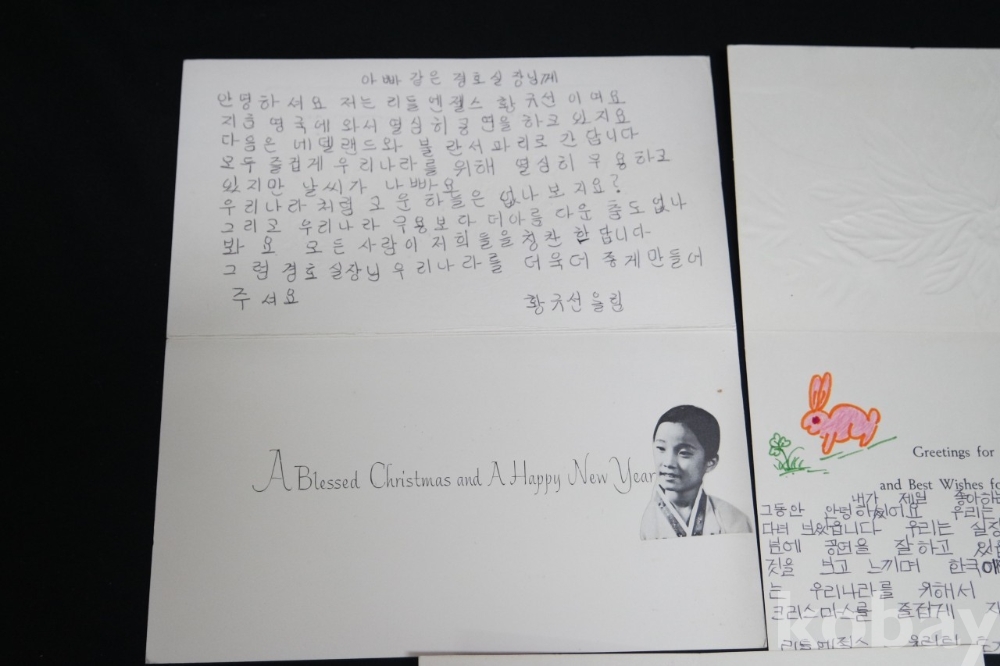 아빠 같은 경호실장님께
안녕하셔요 저는 리틀엔젤스 황규선이여요
지금 영국에 와서 열심히 공연을 하고 있지요
다음은 네델랜드와 불란서 파리로 간답니다
모두 즐겁게 우리나라를 위해 열심히 무용하고
있지만 날씨가 나빠요
우리나라처럼 고운 하늘은 없나보지요?
그리고 우리나라 무용보다 더 아름다운 춤도 없나
봐요 모든 사람이 저희들을 칭찬한답니다
그럼 경호실장님 우리나라를 더욱더 좋게 만들어
주셔요 황규선 올림
A Blessed Christmas and A Happy New Year
Greetings for
and Best Wishes fo
내가 제일 좋아하는
그동안 안녕하셨어요 우리는
다녀 보았읍니다 우리는 실장
공연을 잘하고
것을 보고 느끼며 한국
는 우리나라를 위해서
크리스마스를 즐겁게
리틀엔젤스
kobay